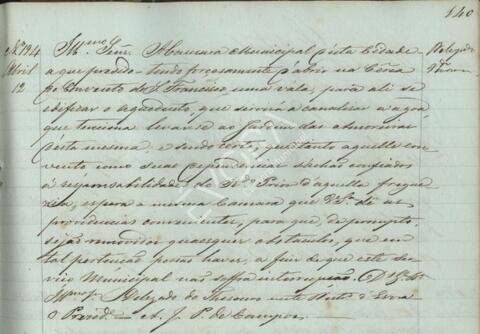 140
Nº 194 Illmo Senr. A Camara Municipal d'esta Cidade Delegado
Abril a que presido = tendo forçosamente d'abrir na Cêrca Thesouro
12 do Convento de S. Francisco uma vala, para ali se
edificar o aqueducto, que servirá a canalisar a agoa
que tenciona levar-se ao Jardim das Amoreiras
desta mesma, e sendo certo, que tanto aquelle con-
vento como suas dependencias se achão confiados
á responsabilidade do Rdo Prior d'aquella fregue-
zia, espera a mesma Camara que VSa. dê as
providencias convenientes, para que, de prompto,
sejão removidos quaesquer obstaculos, que em
tal pertenção possa haver, a fim de que este ser-
viço Municipal não soffra interrupção. D. G. a VSa
Illmo Sr. Delegado do Thesouro neste Distrito d'Evora
O Presid.e A. J. P. de Campos